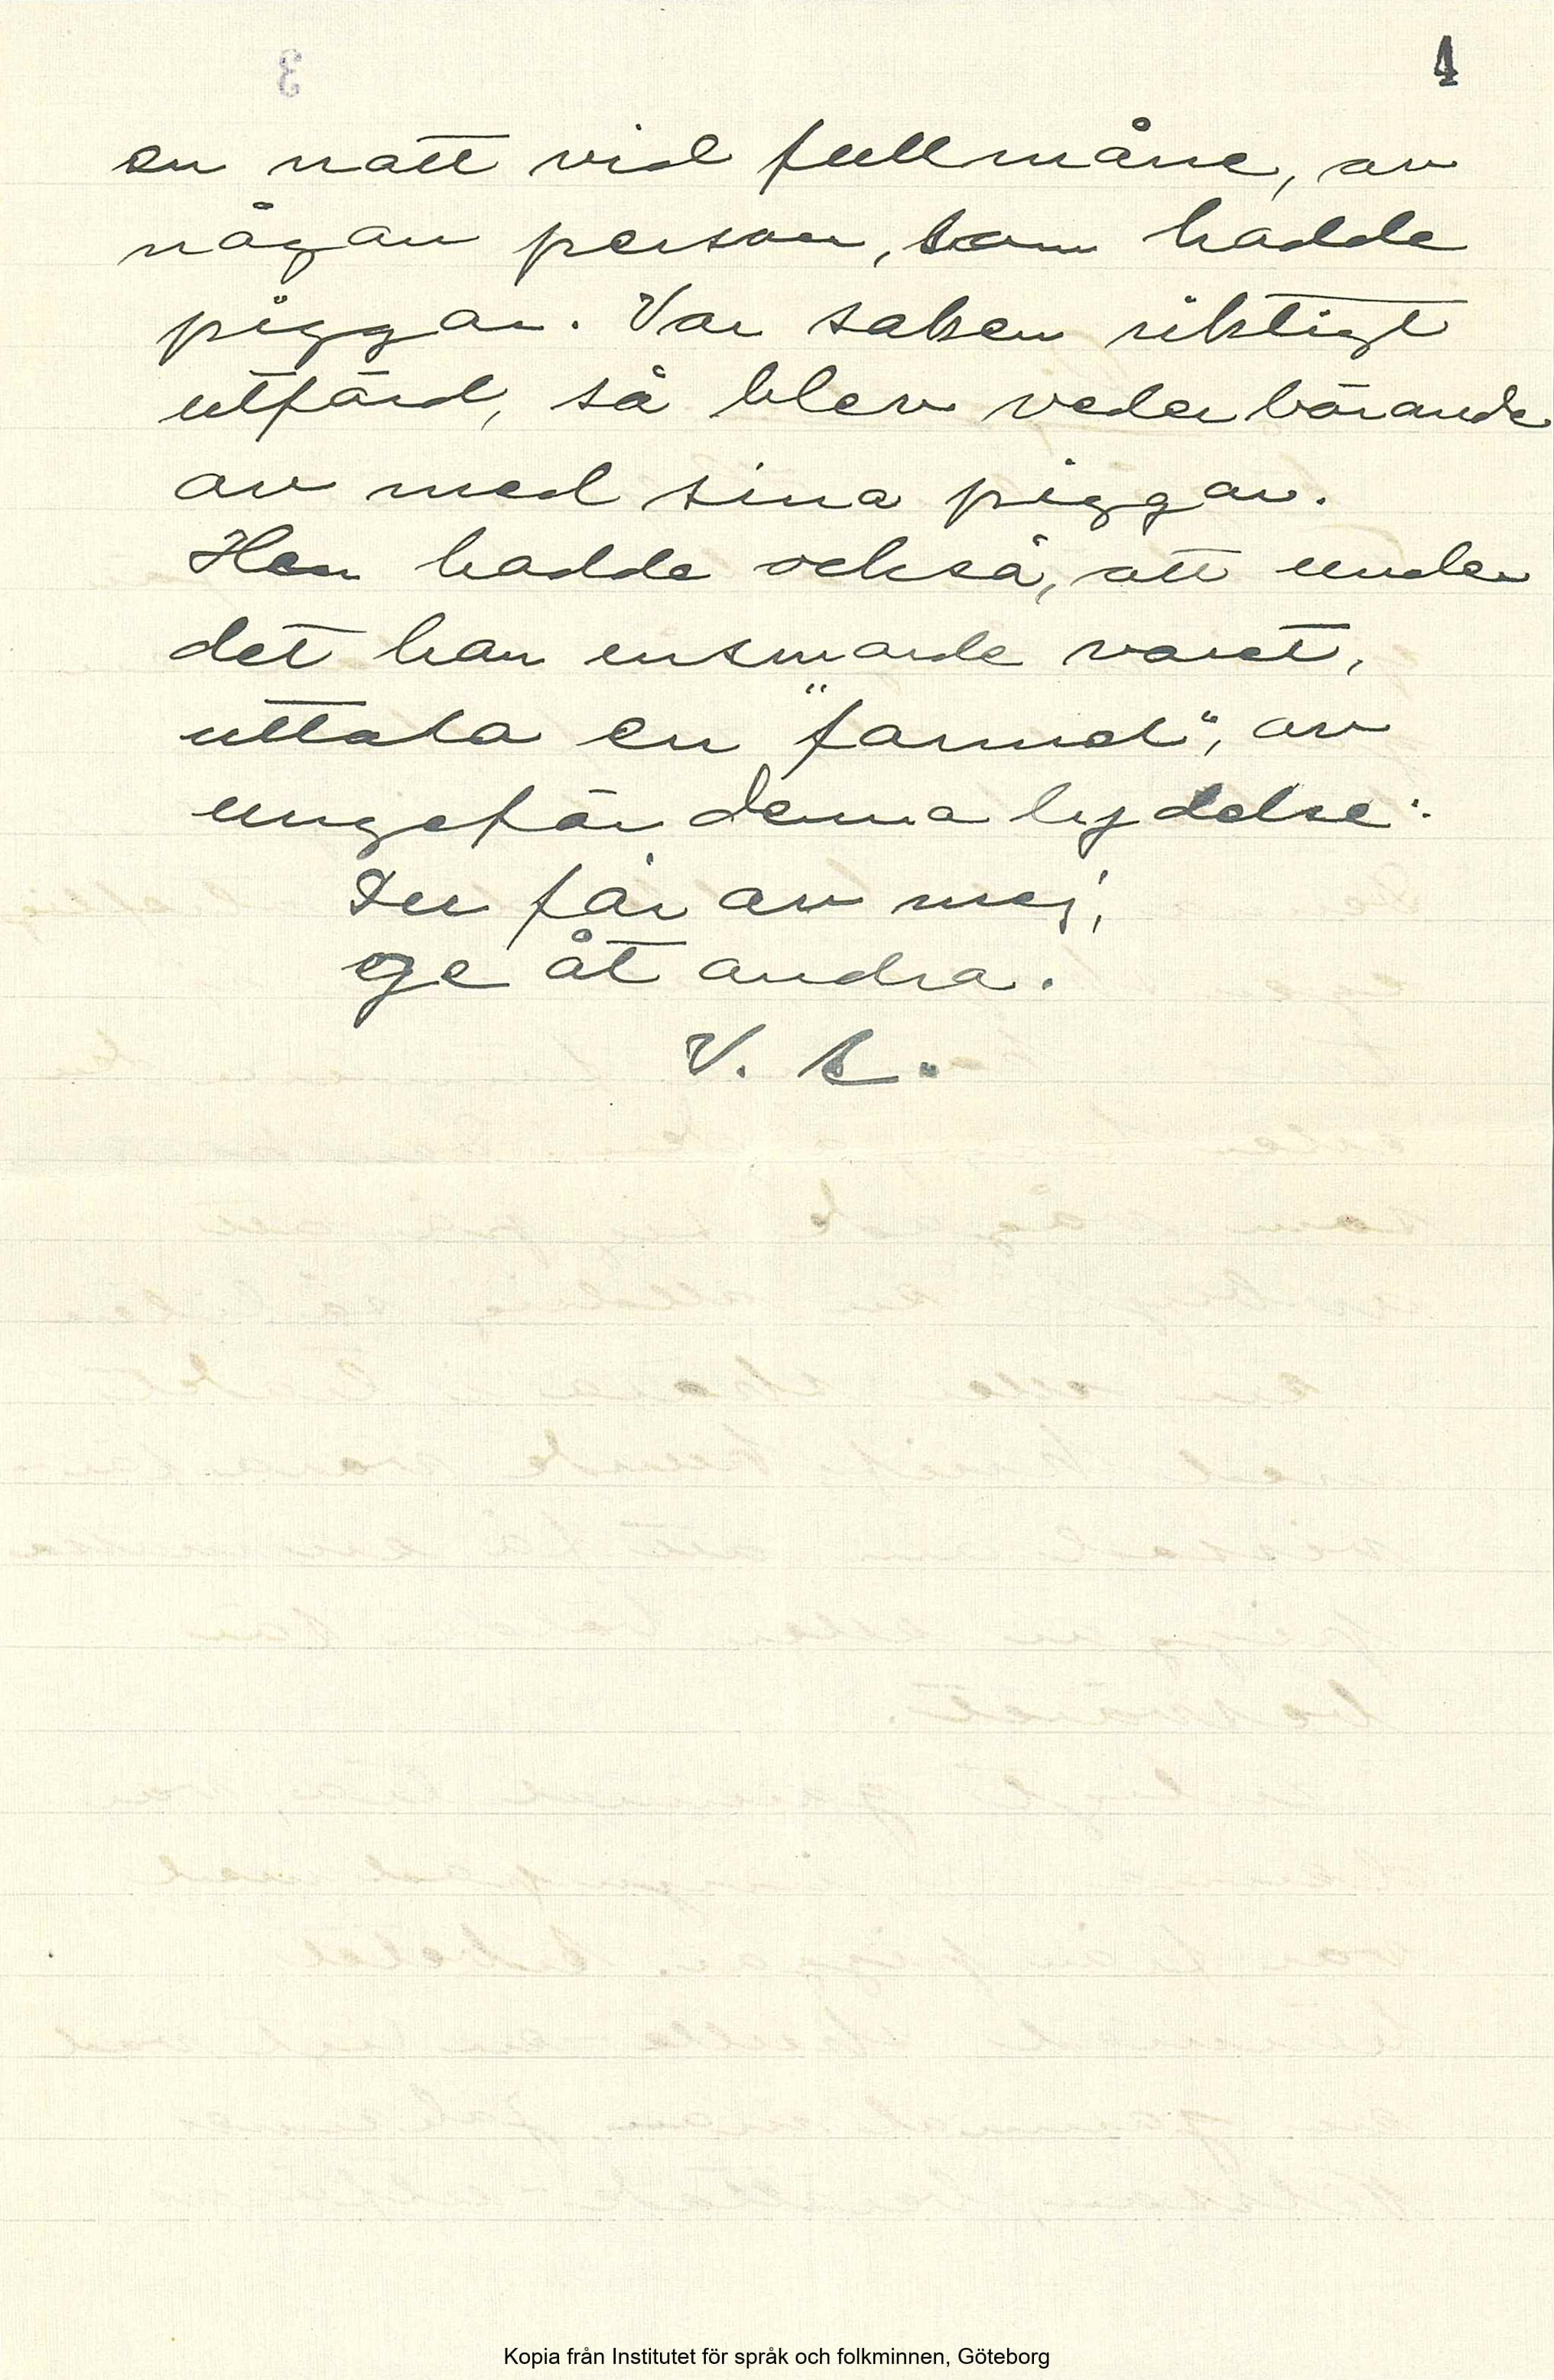 4
en natt vid fullmåne, av
någon person, som hadde
piggar. Var saken riktigt
utförd, så blev vederbörande
av med sina piggar.
Han hadde också, att under
det han insmorde varet,
uttala en "formel", av
ungefär denna lydelse:
Du får av mej,
ge åt andra.
V. S.
Kopia från Institutet för språk och folkminnen, Göteborg